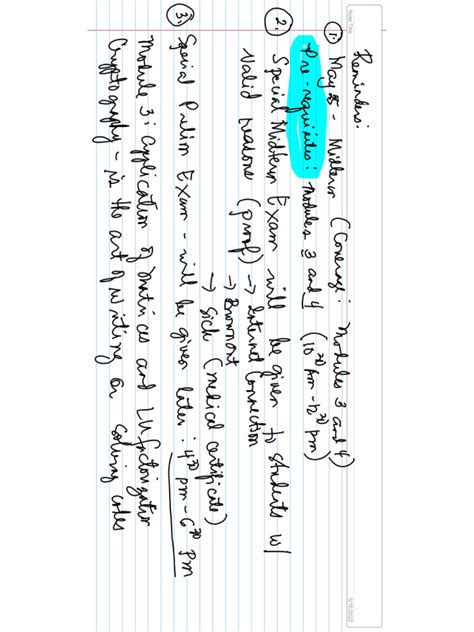 Note Title
5/16/2022
Reminders:
1. May 18 - Midterm (Coverage: Modules 3 and 4)
Pre-requisites: Modules 3 and 4 (10³⁰ Am - 12³⁰ pm)
2. Special Midterm Exam will be given to students w/
Valid reasons (proof) → Internet Connection
→ Brownout
→ Sick (medical certificate)
3. Special Prelim Exam - will be given later: 4³⁰ pm - 6³⁰ pm
Module 3: Application of Matrices and LU factorization
Cryptography - is the art of writing or solving codes